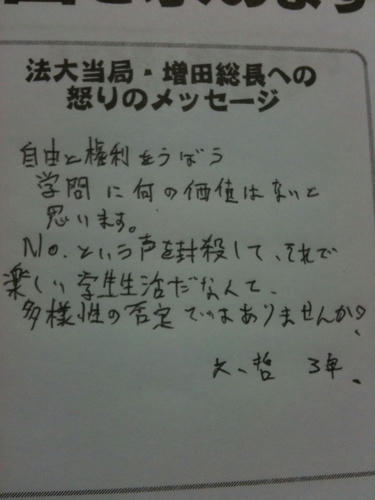 法大当局・増田総長への
怒りのメッセージ
自由と権利をうばう
学問に何の価値はないと
思います。
No.という声を封殺して、それで
楽しい学生生活だなんて、
多様性の否定ではありませんか?
文・哲 3年